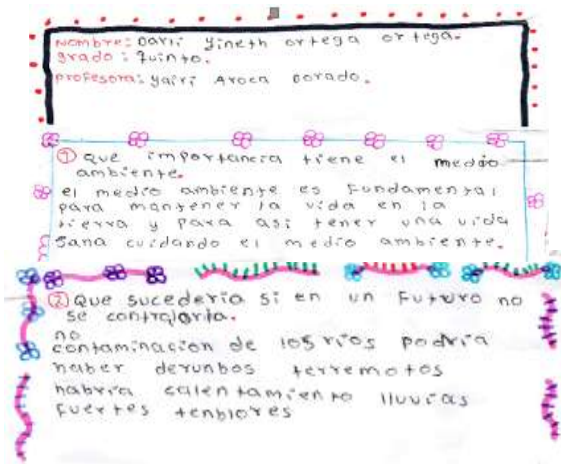 Nombre: Darli yineth ortega ortega.
grado: quinto.
profesora: yairi Aroca Dorado.
① que importancia tiene el medio
ambiente.
el medio ambiente es fundamental
para mantener la vida en la
tierra y para asi tener una vida
sana cuidando el medio ambiente.
② Que sucederia si en un futuro no
se controlaria.
no
contaminacion de los rios podria
haber derunbos terremotos
habria calentamiento lluvias
fuertes tenblores